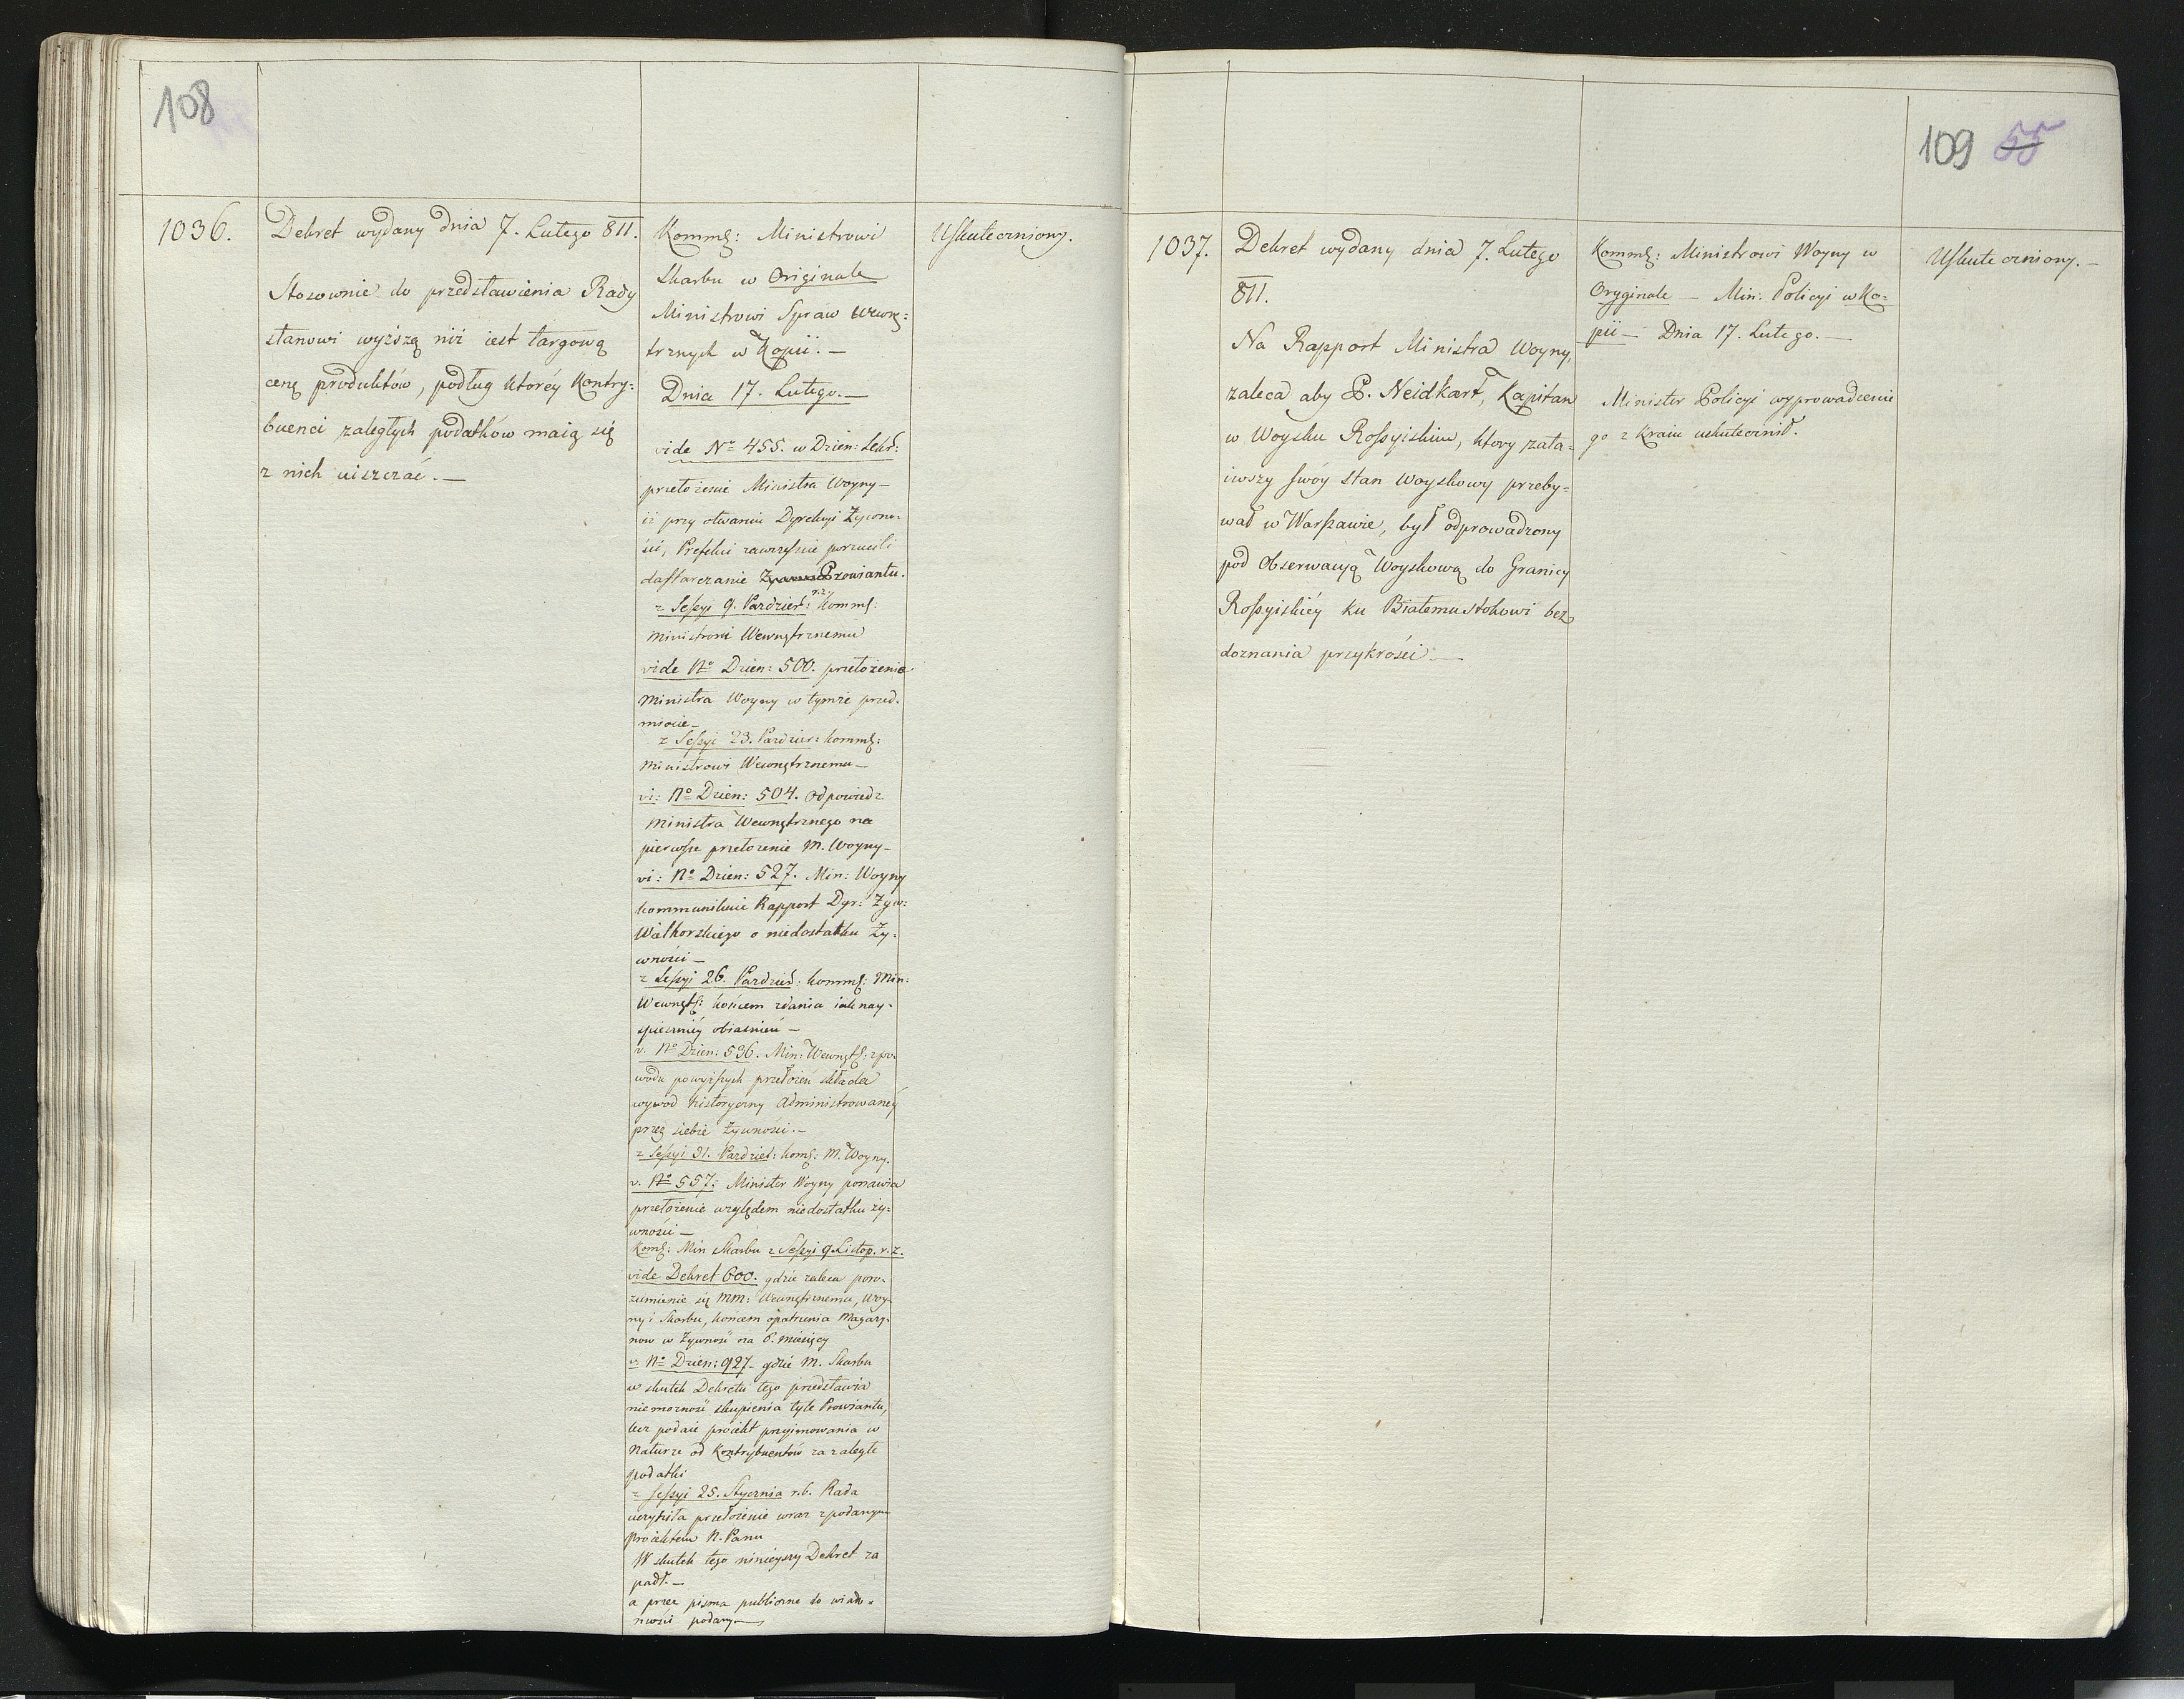 108
1036.
Dekret wydany dnia 7. Lutego 811.
Stosownie do przedstawienia Rady
stanowi wyższą niż iest targową
cenę produktów, podług ktoréy Kontry=
buenci zaległych podatków maią się
z nich uiszczać. —
Komm: Ministrowi
Skarbu w Originale
Ministrowi Spraw Wewnę=
trznych w Kopii. —
Dnia 17. Lutego. —
vide Nº 455. w Dzien: Sekr:
przełożenie Ministra Woyny —
iż przy otwarciu Dyrekcyi Żywno=
ści, Prefekci zawcześnie porzucili
dostarczanie Prowiantu.
z Sessyi 9. Pazdzier: r.z. komm:
Ministrowi Wewnętrznemu
vide Nº Dzien: 500. przełożenie
Ministra Woyny w tymże przed=
miocie —
z Sessyi 23. Pazdzier: komm:
Ministrowi Wewnętrznemu —
vi: Nº Dzien: 504. Odpowiedz
Ministra Wewnętrznego na
pierwsze przełożenie M. Woyny —
vi: Nº Dzien: 527. Min: Woyny
kommunikuie Rapport Dyr: Żyw:
Wałkorskiego o niedostatku Ży=
wności —
z Sessyi 26. Pazdzier: komm: Min:
Wewnęt: końcem zdania iak nay=
spieszniéy obiaśnień —
v. Nº Dzien: 536. Min: Wewnęt: z po=
wodu powyższych przełożeń składa
wywod historyczny Administrowanéy
przez siebie Żywności. —
z Sessyi 31. Pazdzier: kom: M. Woyny.
v. Nº 557: Minister Woyny ponawia
przełożenie względem niedostatku ży=
wności —
Kom: Min Skarbu z Sessyi 9. Listop. r. z.
vide Dekret 600. gdzie zaleca poro=
zumienie się MM: Wewnętrznemu, Woy=
ny i Skarbu, końcem opatrzenia Magazy=
nów w Żywność na 6. miesięcy
v. Nº Dzien: 927. gdzie M. Skarbu
w skutek Dekretu tego przedstawia
niemożność skupienia tyle Prowiantu,
lecz podaie proiekt przyimowania w
Naturze od Kontrybuentów za zaległe
podatki
z Sessyi 25. Stycznia r.b. Rada
uczyniła przełożenie wraz z podanym
Proiektem N. Panu
W skutek tego ninieyszy Dekret za
padł. —
a przez pisma publiczne do wiado=
mości podany —
Uskuteczniony.
109 55
1037.
Dekret wydany dnia 7. Lutego
811.
Na Rapport Ministra Woyny,
zaleca aby P. Neidkart, Kapitan
w Woysku Rossyiskim, ktory zata=
iwszy swóy stan Woyskowy przeby=
wał w Warszawie, był odprowadzony
pod Obserwacyą Woyskową do Granicy
Rossyiskiéy ku Białemustokowi bez
doznania przykrości —
Komm: Ministrowi Woyny w
Oryginale — Min: Policyi w Ko=
pii — Dnia 17. Lutego. —
Minister Policyi wyprowadzenie
go z Kraiu uskutecznił.
Uskuteczniony. —